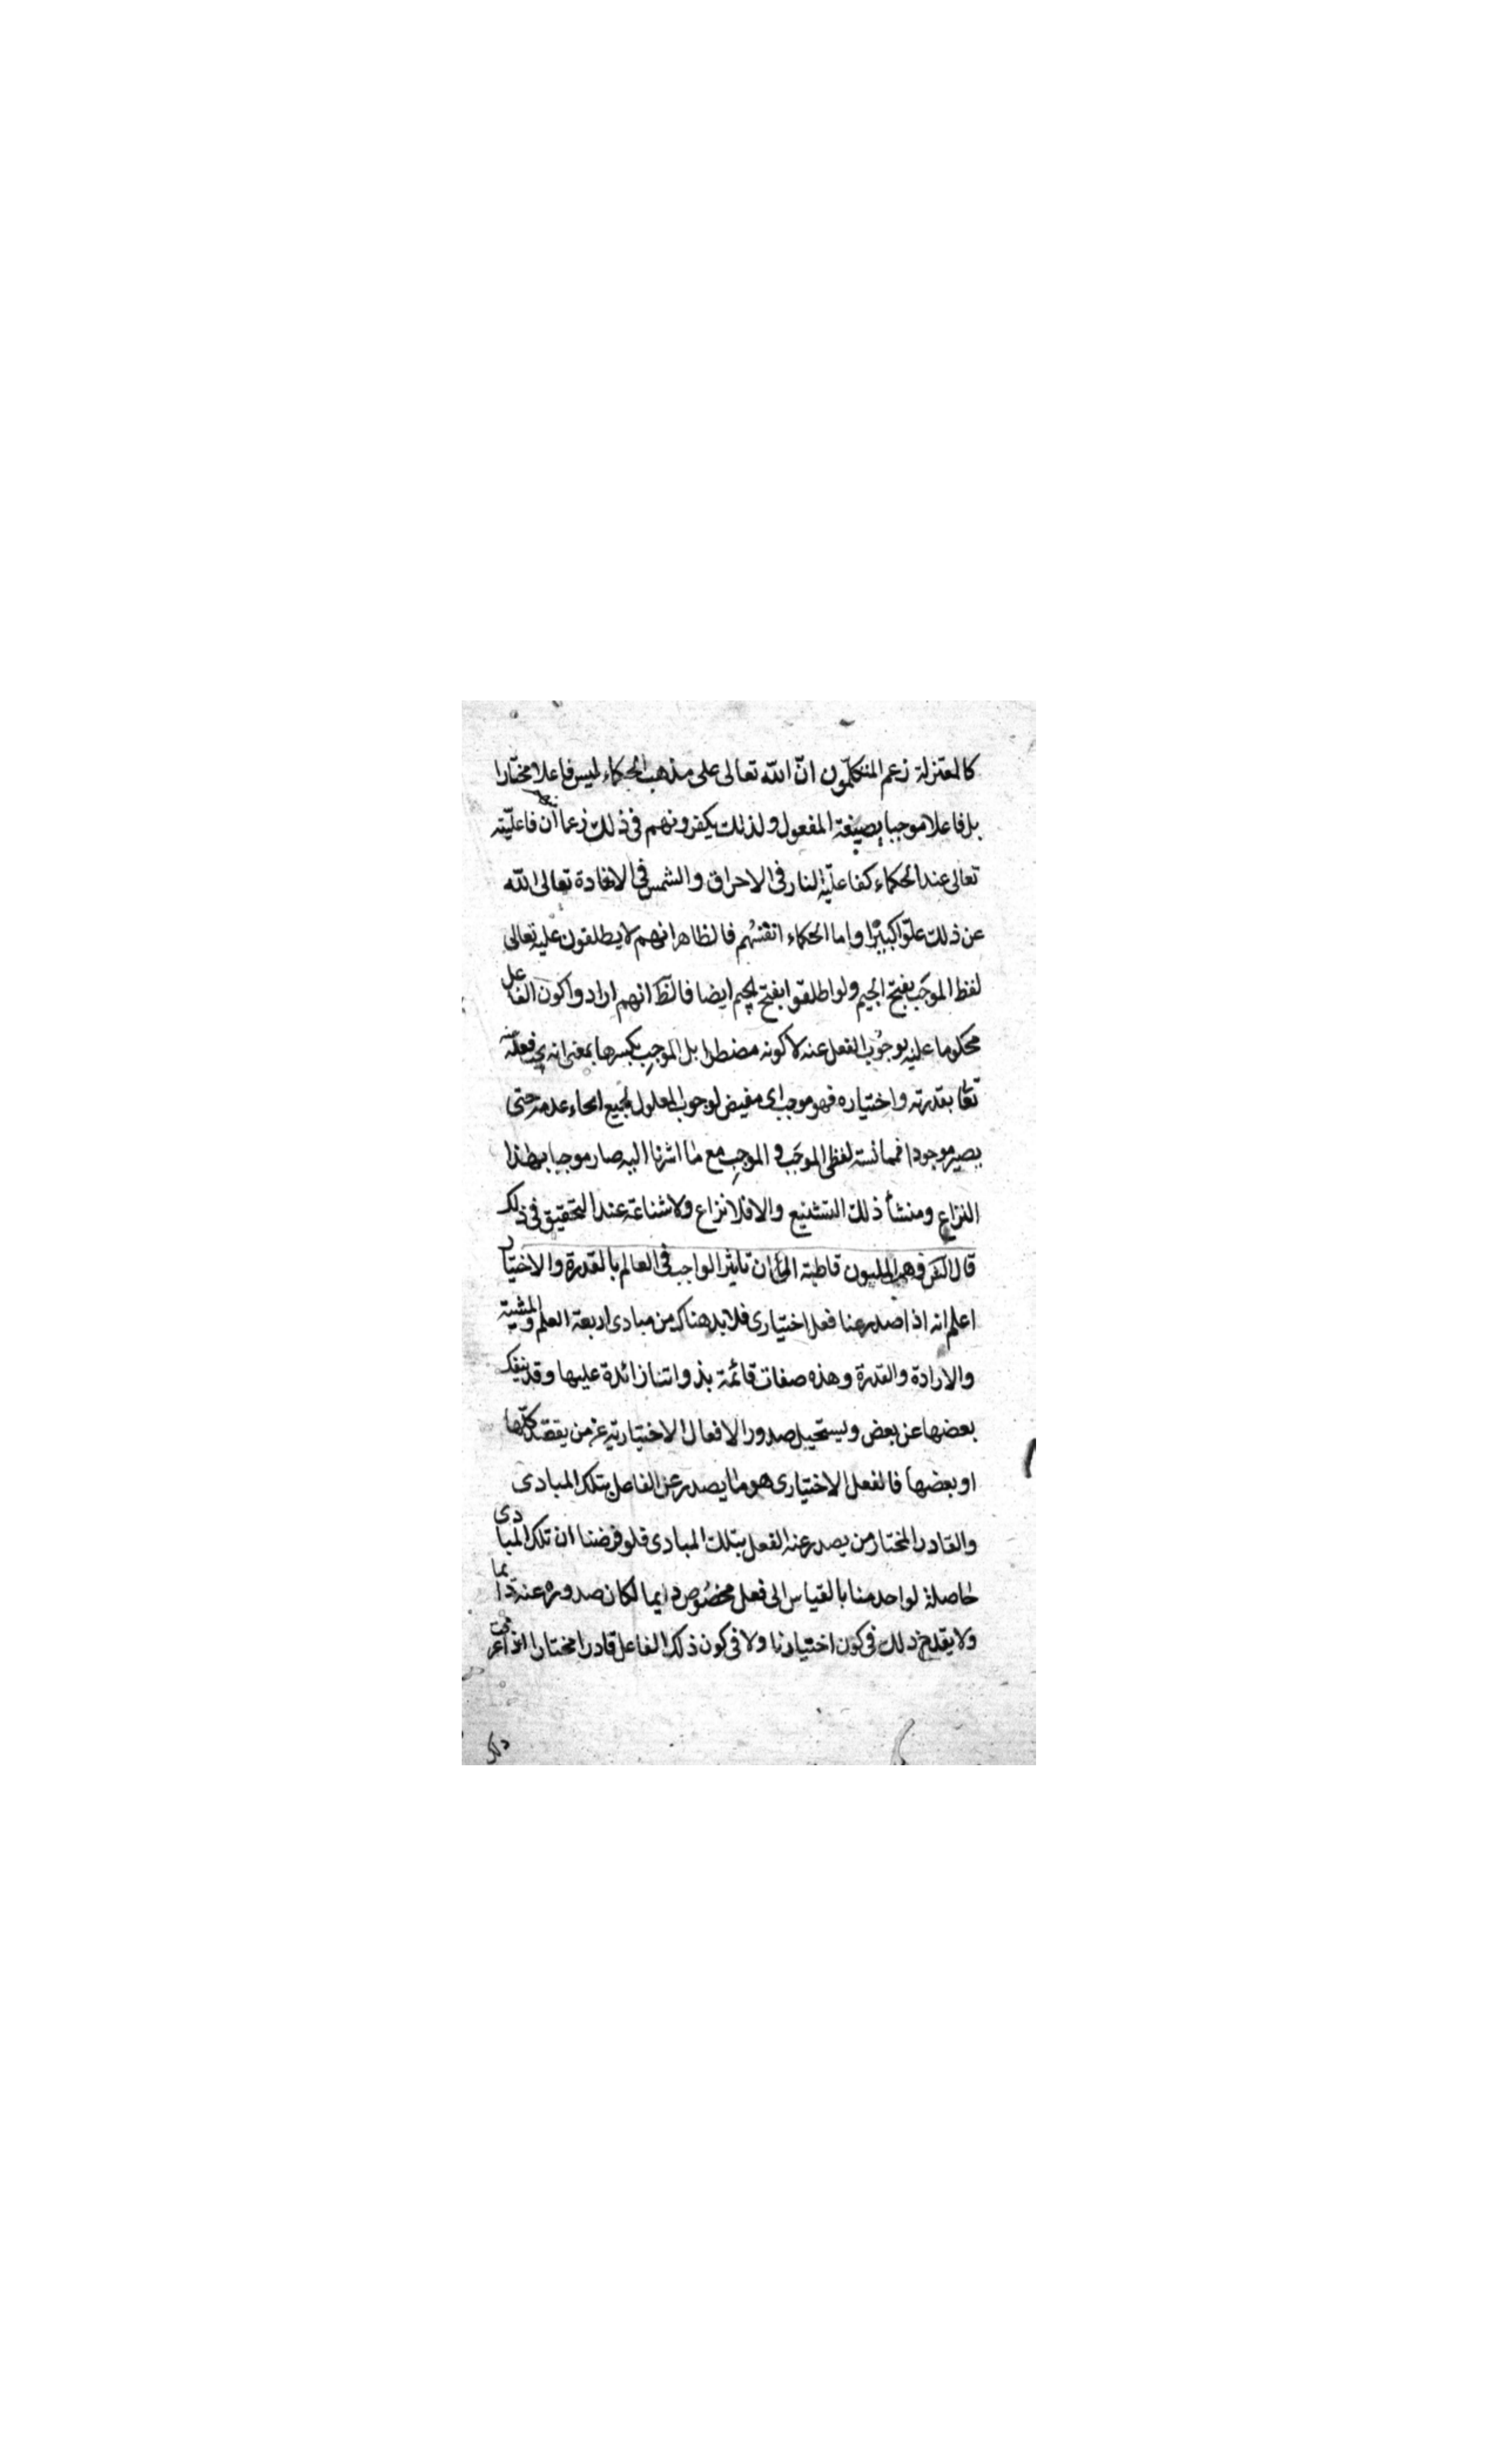 كالمعتزلة زعم المتكلّمون انّ اللّه تعالى على مذهب الحكماء ليس فاعلا مختارا
بل فاعلا موجبا بصيغة المفعول ولذلك يكفرونهم في ذلك زعما أن فاعليّته
تعالى عند الحكماء كفاعليّة النار في الاحراق والشمس في الاضاءة تعالى اللّه
عن ذلك علوّا كبيرًا واما الحكماء انفسُهم فالظاهر انهم لا يطلقون عليه تعالى
لفظ الموجَب بفتح الجيم ولو اطلقوا بفتح الجيم ايضا فالظّ انهم ارادوا كون الفاعل
محكوما عليه بوجُوب الفعل عنه لا كونه مضطرا بل الموجِب بكسرها بمعنى انه يجب فعله عنه
تعا بقدرته واختياره فهو موجب اى مفيض لوجوب المعلول لجميع انحاء عدمه حتى
يصير موجودا فمجانسة لفظى الموجَب و الموجِب مع ما اشرنا اليه صار موجبا لهذا
النزاع ومنشأ ذلك التشنيع والا فلا نزاع ولا شناعة عند التحقيق في ذلك
قال فذهب المليون قاطبة الى ان تاثير الواجب في العالم بالقدرة والاختيار
اعلم انه اذا صدر عنا فعل اختيارى فلا بد هناك من مبادى اربعة العلم والمشية
والارادة والقدرة وهذه صفات قائمة بذواتنا زائدة عليها وقد ينفك
بعضها عن بعض ويستحيل صدور الافعال الاختيارية عن من يفقد كلّها
او بعضها فالفعل الاختيارى هو ما يصدر عن الفاعل بتلك المبادى
والقادر المختار من يصدر عنه الفعل بتلك المبادى فلو فرضنا ان تلك المبادى
حاصلة لواحد منا بالقياس الى فعل مخصُوص دايما لكان صدوره عنه دايما
ولا يقدح ذلك في كون اختيارنا ولا في كون ذلك الفاعل قادرا مختارا اذا عرفت
ذلك